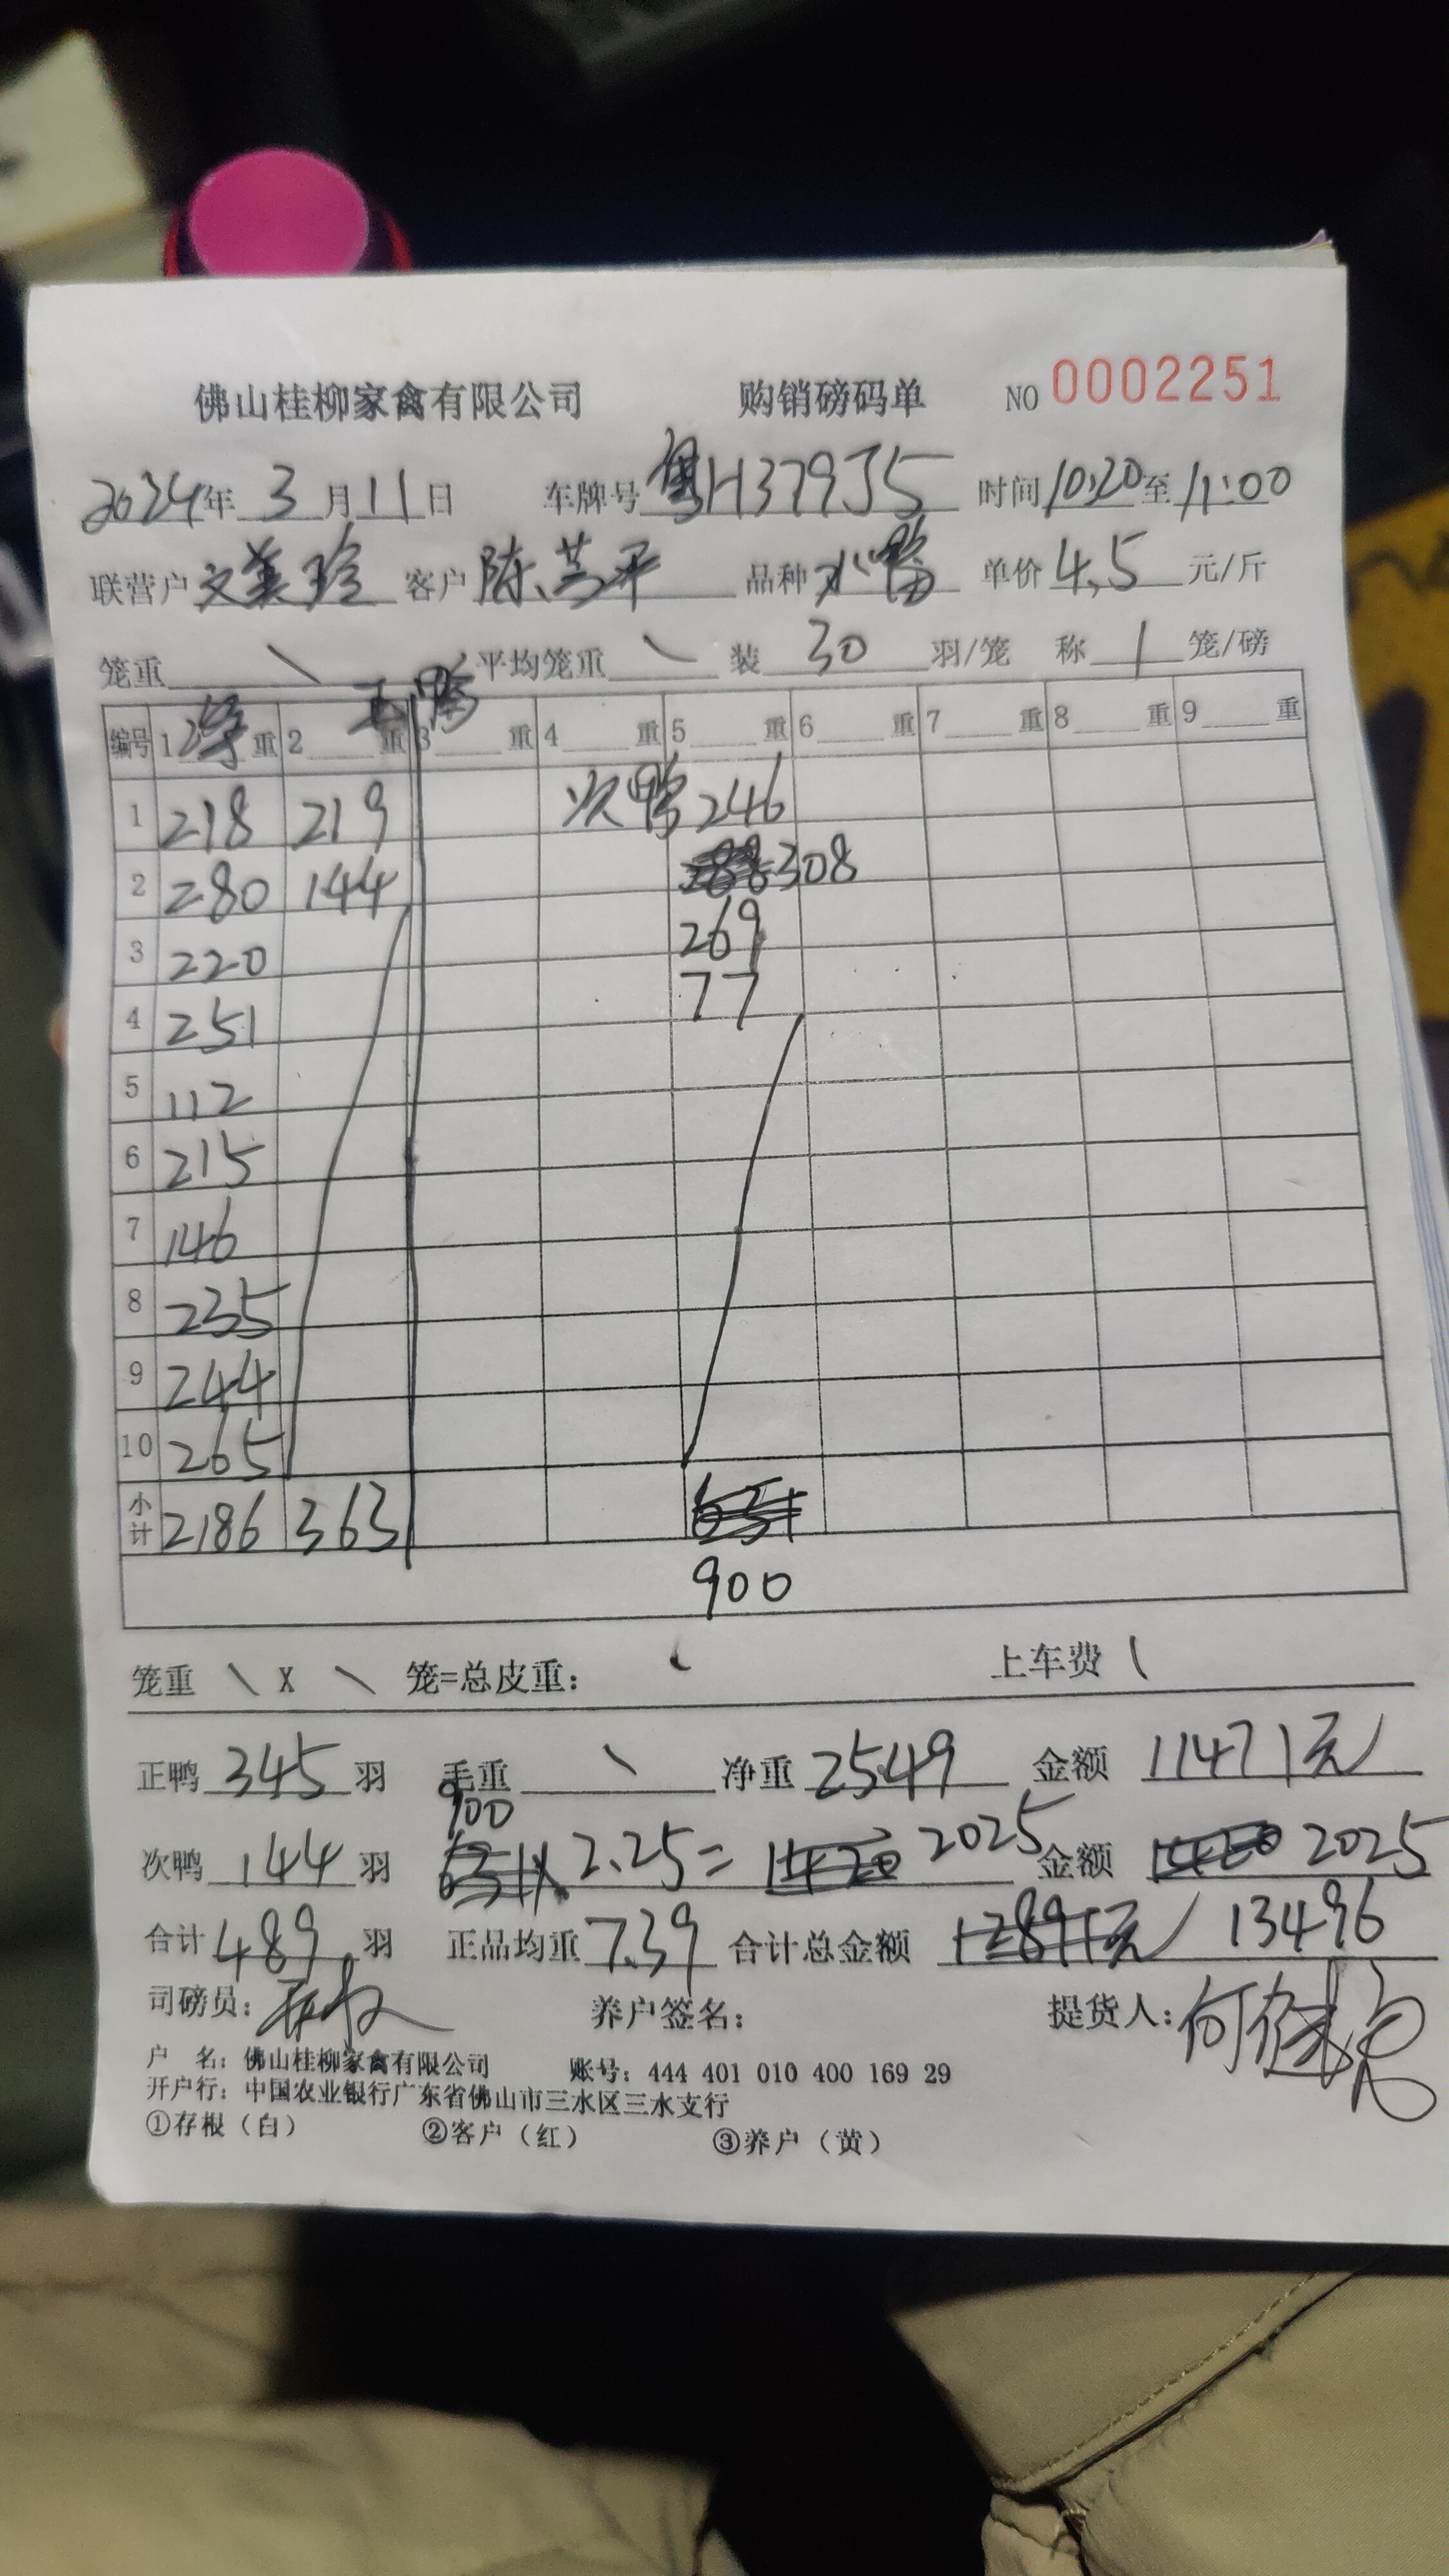 佛山桂柳家禽有限公司 购销磅码单 NO 0002251
2024年 3月11日 车牌号 粤H379J5 时间10:20至11:00
联营户 文美玲 客户 陈芸平 品种 水鸭 单价4.5 元/斤
笼重 \ 平均笼重 \ 装 30 羽/笼 称 1 笼/磅
正鸭
编号 1 净 重 2 重 3 重 4 重 5 重 6 重 7 重 8 重 9 重
1 218 219 次鸭 246
2 280 144 308
3 220 269
4 251 77
5 112
6 215
7 146
8 235
9 244
10 265
小计 2186 363
900
笼重 \ X \ 笼=总皮重: 上车费 \
正鸭 345 羽 毛重 \ 净重 2549 金额 11471元
900
次鸭 144 羽 x 2.25= 2025 金额 2025
合计 489 羽 正品均重 7.39 合计总金额 12891元 13496
司磅员: 养户签名: 提货人:
户 名: 佛山桂柳家禽有限公司 账号: 444 401 010 400 169 29
开户行: 中国农业银行广东省佛山市三水区三水支行
①存根（白） ②客户（红） ③养户（黄）